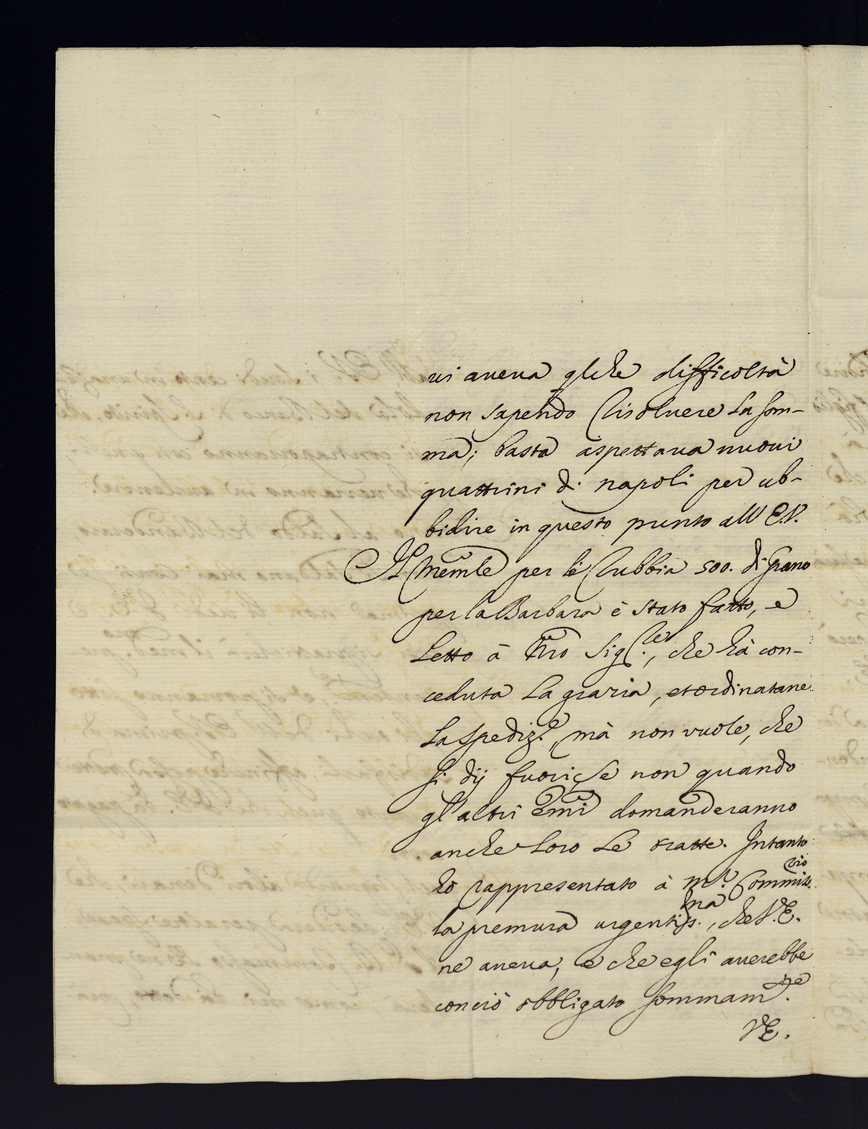 vi aveva qlche difficoltà
non sapendo risolvere la som-
ma; basta aspettava nuovi
quattrini di napoli per ub-
bidire in questo punto all' E.V.
Il Memle per le rubbia 500. di grano
per la Barbara è stato fatto, e
letto à Nro Sigre., che hà con-
ceduta la grazia, et ordinatane
la spedize., mà non vuole, che
si dij fuori, se non quando
gl'altri Emi domanderanno
anche loro le tratte. Intanto
hò rappresentato à Mr. Commissrio
la premura urgentissma., che V.E.
ne aveva, e che egli averebbe
conciò obbligato sommamte.
V.E.